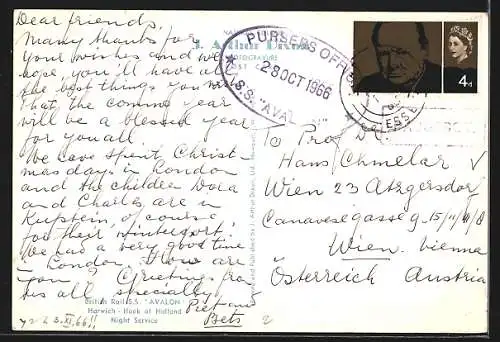 Dear friends.
Many thanks for
your wishes and we
hope, you'll have all
the best things you wish
that the coming year
will be a blessed year
for you all.
We have spent Christ-
mas days in London
and the childer Dora
and Charles are in
Kufstein, of course
for their wintersport.
We had a very good time
in London. How are
you? Greetings from
us all specially
Piet and
Bets
J. Arthur Dixon
PHOTOGRAVURE
British Rail S.S. "AVALON"
Harwich - Hook of Holland
Night Service
23.XI.66!!
PURSERS OFFICE
28 OCT 1966
S.S. "AVALON"
4d
ESSEX
To Prof Dr
Hans Chmelar
Wien 23 Atzgersdorf
Canavesegasse 9-15/11/
Wien. Vienna
Österreich Austria